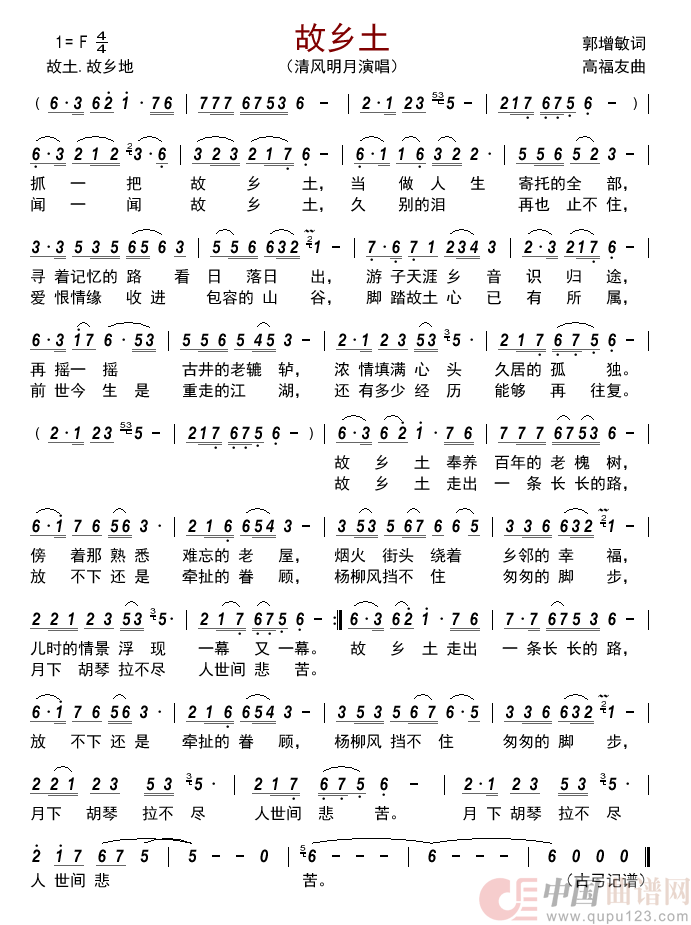 故乡土
1= F 4/4
郭增敏词
故土.故乡地
（清风明月演唱）
高福友曲
( 6·3 62 1·76 | 777 6753 6 - | 2·1 23 53 5 - | 217 675 6 - ) |
6·3 212 2 3·6 | 323 217 6 - | 6·1 16 32 2· | 556 52 3 - |
抓 一 把 故 乡 土， 当 做 人 生 寄托的全 部，
闻 一 闻 故 乡 土， 久 别的泪 再也 止不 住，
3·3 535 65 6 3 | 556 632 2 1 - | 7·6 71 234 3 | 2·3 217 6 - |
寻 着记忆的 路 看 日 落日 出， 游 子天涯 乡 音 识 归 途，
爱 恨情缘 收 进 包容的 山 谷， 脚 踏故土 心 已 有 所 属，
6·3 17 6·53 | 556 545 3 - | 2·1 23 53 3 5· | 217 675 6 - |
再 摇一 摇 古井的老辘 轳， 浓 情填满 心 头 久居的 孤 独。
前 世今 生 是 重走的江 湖， 还 有多少 经 历 能够 再 往复。
( 2·1 23 53 5 - | 217 675 6 - ) | 6·3 62 1·76 | 777 6753 6 - |
故 乡 土 奉养 百年的 老 槐 树，
故 乡 土 走出 一 条 长 长的路，
6·1 76 56 3 - | 216 654 3 - | 353 567 66 5 | 336 632 2 1 - |
傍 着那 熟 悉 难忘的 老 屋， 烟火 街头 绕着 乡邻的 幸 福，
放 不下 还是 牵扯的 眷 顾， 杨柳风挡不 住 匆匆的 脚 步，
22 123 53 3 5· | 217 675 6 - :| 6·3 62 1·76 | 777 6753 6 - |
儿时的情景 浮 现 一幕 又 一幕。 故 乡 土 走出 一 条 长长 的 路，
月下 胡琴 拉不尽 人世间 悲 苦。
6·1 76 56 3· | 216 654 3 - | 353 53 567 6 - | 336 632 2 1 - |
放 不下 还 是 牵扯的 眷 顾， 杨柳风 挡 不 住 匆匆的 脚 步，
221 23 53 3 5· | 217 675 6 - | 2·1 23 53 3 5· |
月下 胡琴 拉不 尽 人世间 悲 苦。 月 下 胡琴 拉不 尽
2 17 67 5 | 5 - - 0 | 5 6 - - - | 6 - - - | 6 0 0 0 ‖
人 世间 悲 苦。 （古弓记谱）
中国曲谱网
www.qupu123.com